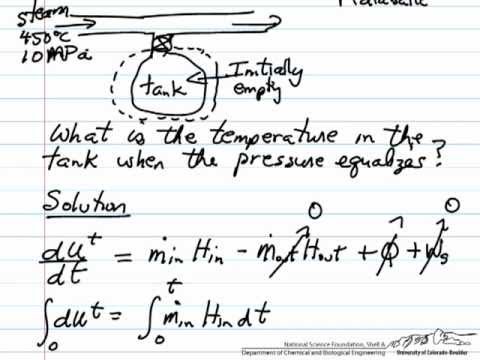 steam
450°C
10 MPa
tank
Initially
empty
What is the temperature in the
tank when the pressure equalizes?
Solution
0 0
dU^t/dt = ṁin Hin - ṁout Hout + Q̇ + Ẇs
∫₀ dU^t = ∫₀^t ṁin Hin dt
National Science Foundation, Shell &
Department of Chemical and Biological Engineering University of Colorado Boulder